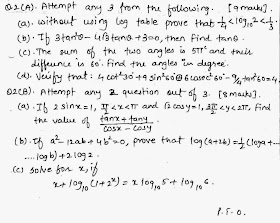 Q.2(A). Attempt any 3 from the following. [9 marks].
(a). without using log table prove that 1/4 < log₁₀2 < 1/3
(b). If 3tan²θ - 4√3 tanθ + 3 = 0, then find tanθ.
(c). The sum of the two angles is 5π^c and their
difference is 60°. Find the angles in degree.
(d). Verify that: 4cot²30° + 9sin²60° - 6cosec²60° - 9/4 tan²60° = 4.
Q2(B). Attempt any 2 question out of 3. [8 marks].
(a). If 2sinx = 1, π/2 < x < π and √2 cosy = 1, 3π/2 < y < 2π, find
the value of tanx + tany / cosx - cosy
(b). If a² - 12ab + 4b² = 0, prove that log(a+2b) = 1/2 (log a + ...
.... log b) + 2 log 2.
(c) solve for x, if
x + log₁₀(1 + 2ˣ) = x log₁₀5 + log₁₀6.
P.T.O.